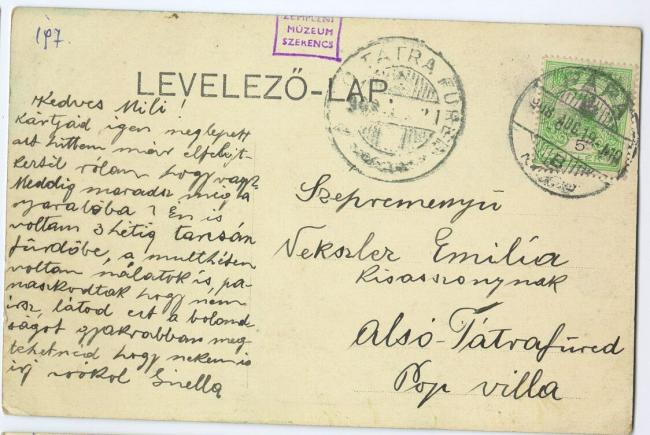 197.
ZEMPLÉNI
MÚZEUM
SZERENCS
LEVELEZŐ-LAP
TÁTRA FÜRED
PÁPA
908 AUG. 19
Kedves Mili!
Kártyád igen meglepett
azt hittem már elfelejt-
keztél rólam hogy vagy?
Meddig maradsz még a
nyaralóba? Én is
voltam 3 hétig
fürdőbe, a multhéten
voltam nálatok is, pa-
naszkodtak hogy nem
írsz, látod ezt a bolond-
ságot gyakrabban meg-
tehetnéd hogy nekem is
írj csókol Gizella
Szepreményű
Vekszler Emilia
Kisasszonynak
Alsó-Tátrafüred
Pop villa